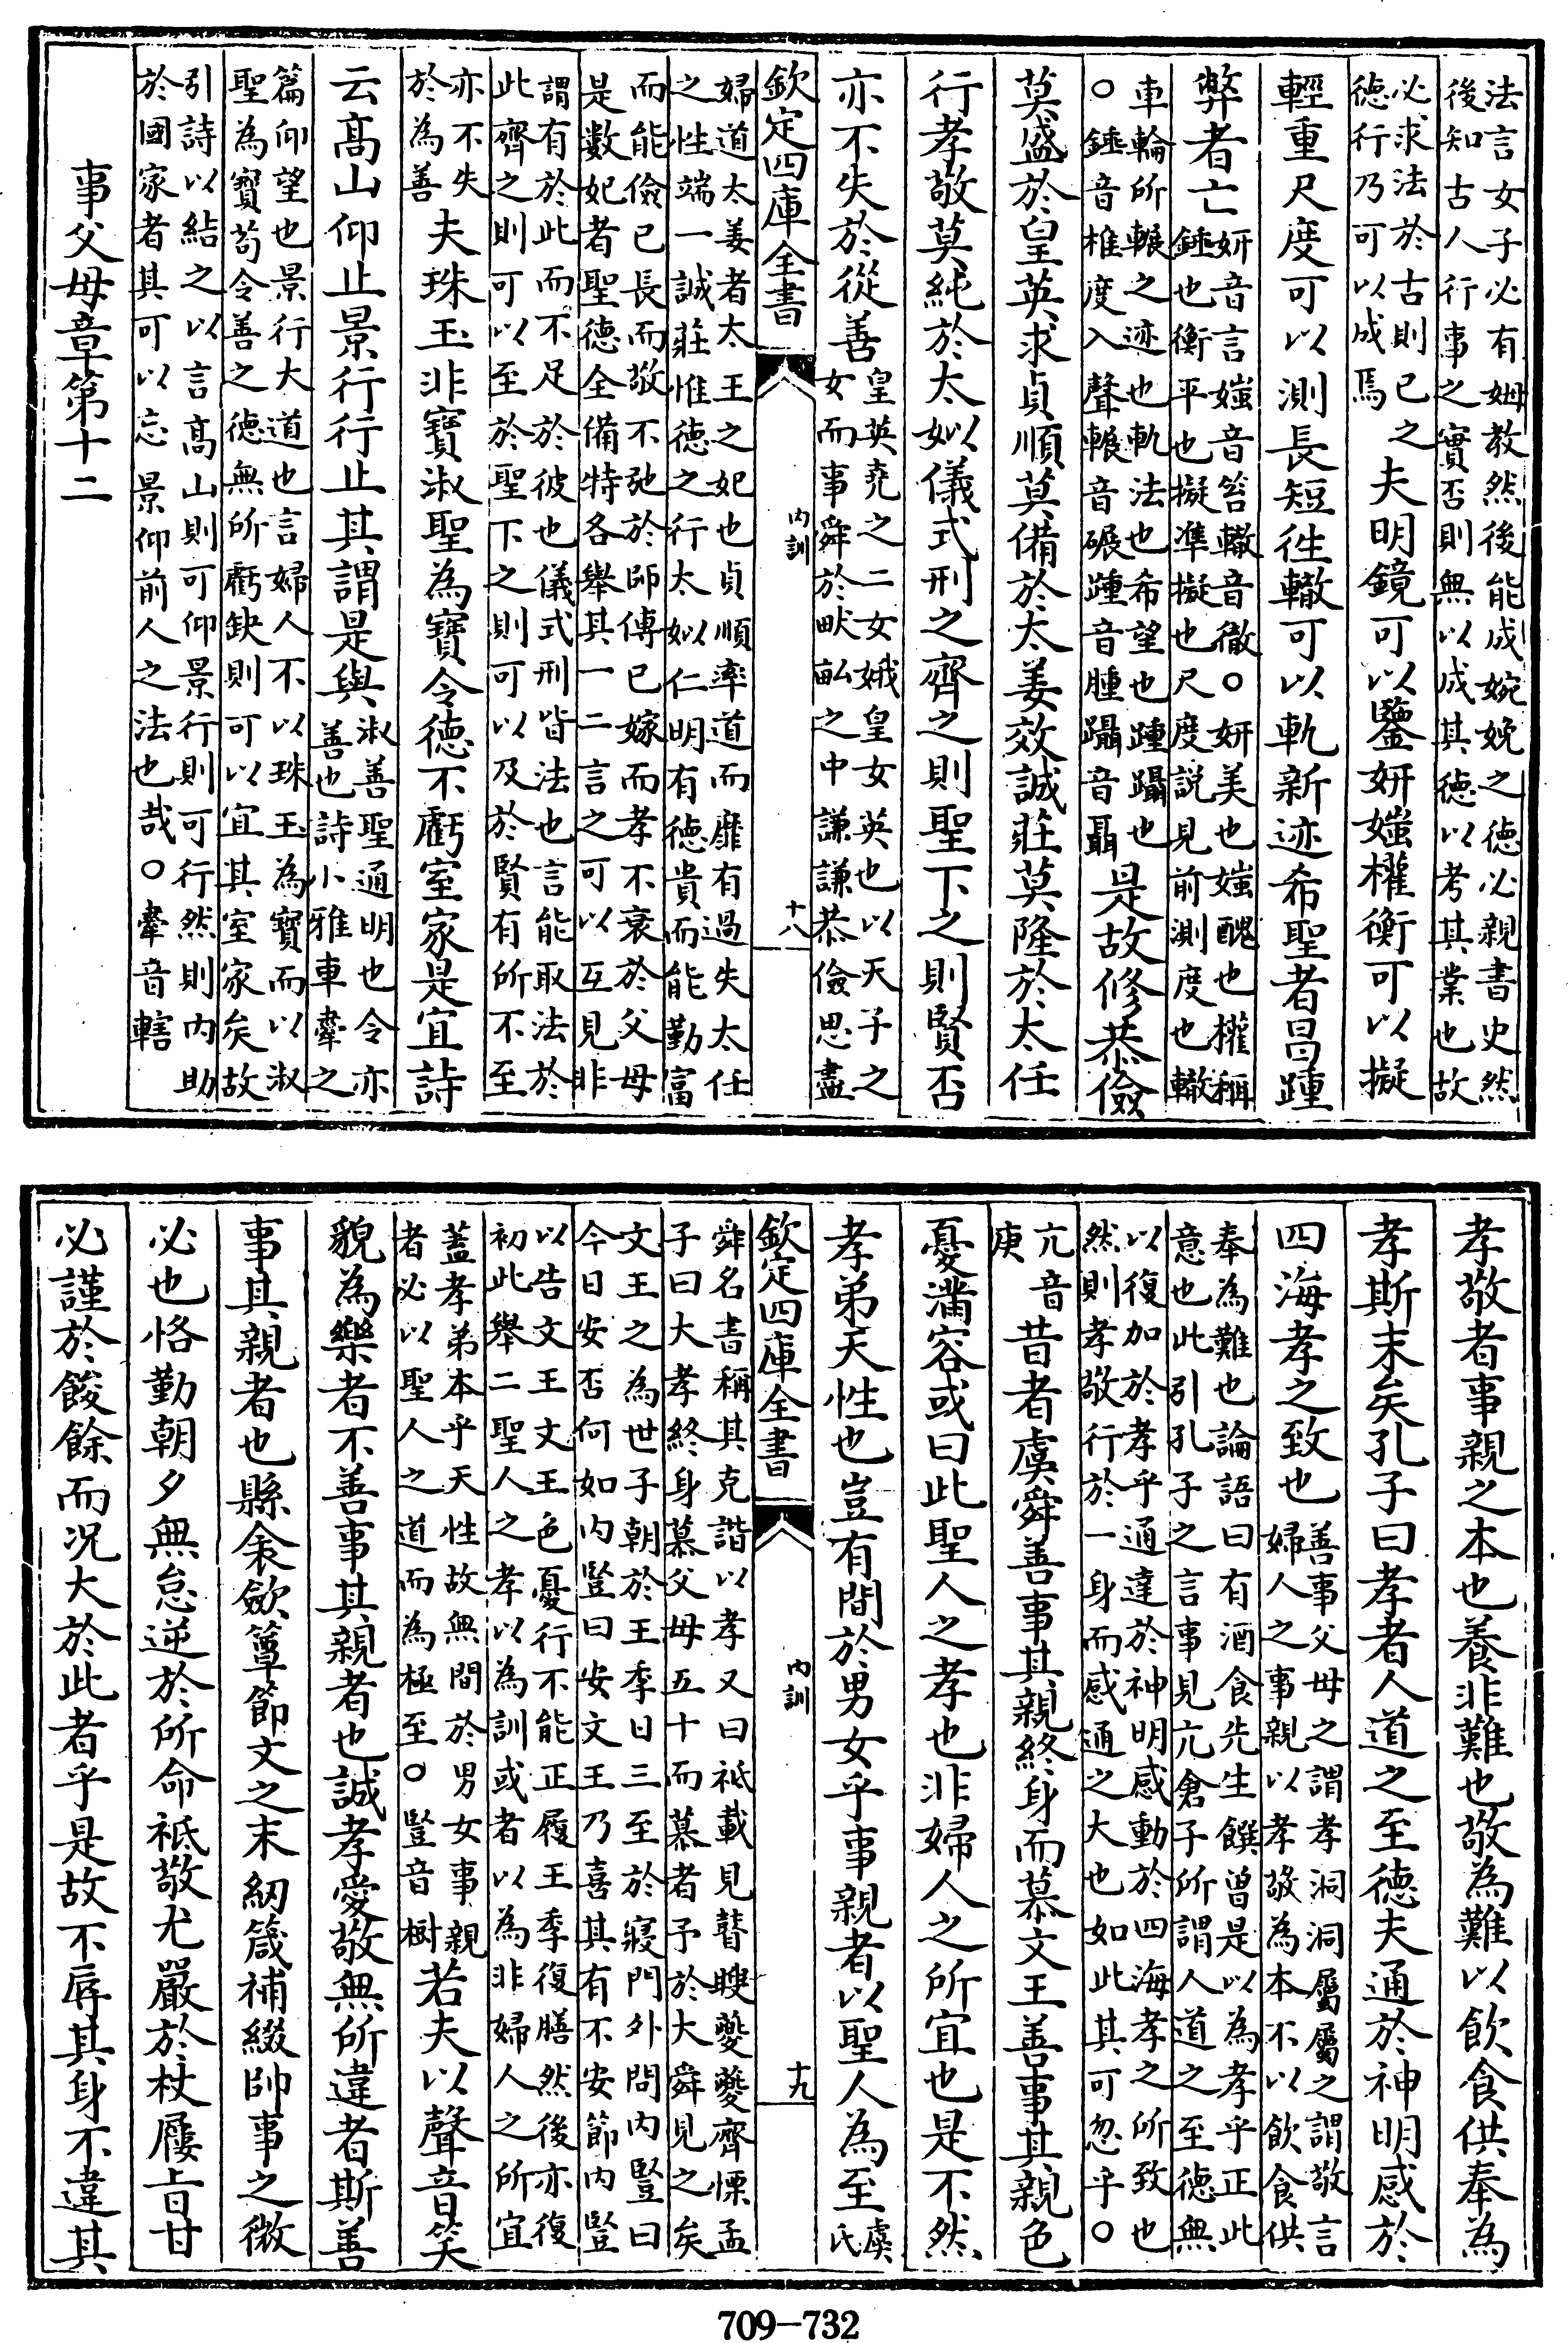 法言女子必有姆教然後能成婉娩之德必親書史然
後知古人行事之實否則無以成其德以考其業也故
必求法於古則已之
德行乃可以成焉
夫明鏡可以鑒妍媸權衡可以擬
輕重尺度可以測長短徃轍可以軌新迹希聖者昌踵
弊者亡
妍音言媸音笞轍音徹○妍美也媸醜也權稱
錘也衡平也擬準擬也尺度説見前測度也轍
車輪所輾之迹也軌法也希望也踵躡也
○錘音椎度入聲輾音碾踵音腫躡音聶
是故修恭儉
莫盛於皇英求貞順莫備於太姜效誠莊莫隆於太任
行孝敬莫純於太姒儀式刑之齊之則聖下之則賢否
亦不失於從善
皇英堯之二女娥皇女英也以天子之
女而事舜於畎畝之中謙謙恭儉思盡
欽定四庫全書
內訓
十八
婦道太姜者太王之妃也貞順率道而靡有過失太任
之性端一誠莊惟德之行太姒仁明有德貴而能勤富
而能儉已長而敬不弛於師傅已嫁而孝不衰於父母
是數妃者聖德全備特各舉其一二言之可以互見非
謂有於此而不足於彼也儀式刑皆法也言能取法於
此齊之則可以至於聖下之則可以及於賢有所不至
亦不失
於為善
夫珠玉非寶淑聖為寶令德不虧室家是宜詩
云高山仰止景行行止其謂是與
淑善聖通明也令亦
善也詩小雅車舝之
篇仰望也景行大道也言婦人不以珠玉為寶而以淑
聖為寶苟令善之德無所虧缺則可以宜其室家矣故
引詩以結之以言高山則可仰景行則可行然則內助
於國家者其可以忘景仰前人之法也哉○舝音轄
事父母章第十二
孝敬者事親之本也養非難也敬為難以飲食供奉為
孝斯末矣孔子曰孝者人道之至德夫通於神明感於
四海孝之致也
善事父母之謂孝洞洞屬屬之謂敬言
婦人之事親以孝敬為本不以飲食供
奉為難也論語曰有酒食先生饌曾是以為孝乎正此
意也此引孔子之言事見亢倉子所謂人道之至德無
以復加於孝乎通達於神明感動於四海孝之所致也
然則孝敬行於一身而感通之大也如此其可忽乎○
亢音
庚
昔者虞舜善事其親終身而慕文王善事其親色
憂滿容或曰此聖人之孝也非婦人之所宜也是不然
孝弟天性也豈有間於男女乎事親者以聖人為至
虞
氏
欽定四庫全書
內訓
十九
舜名書稱其克諧以孝又曰祗載見瞽瞍夔夔齊慄孟
子曰大孝終身慕父母五十而慕者予於大舜見之矣
文王之為世子朝於王季日三至於寢門外問內豎曰
今日安否何如內豎曰安文王乃喜其有不安節內豎
以告文王文王色憂行不能正履王季復膳然後亦復
初此舉二聖人之孝以為訓或者以為非婦人之所宜
蓋孝弟本乎天性故無間於男女事親
者必以聖人之道而為極至○豎音樹
若夫以聲音笑
貌為樂者不善事其親者也誠孝愛敬無所違者斯善
事其親者也縣衾斂簟節文之末紉箴補綴帥事之微
必也恪勤朝夕無怠逆於所命祗敬尤嚴於杖屨旨甘
必謹於餕餘而况大於此者乎是故不辱其身不違其
709—732